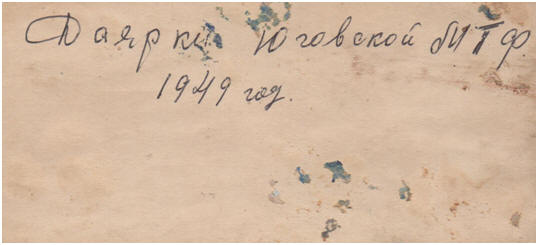 Доярки Юговской МТФ.
1949 год.